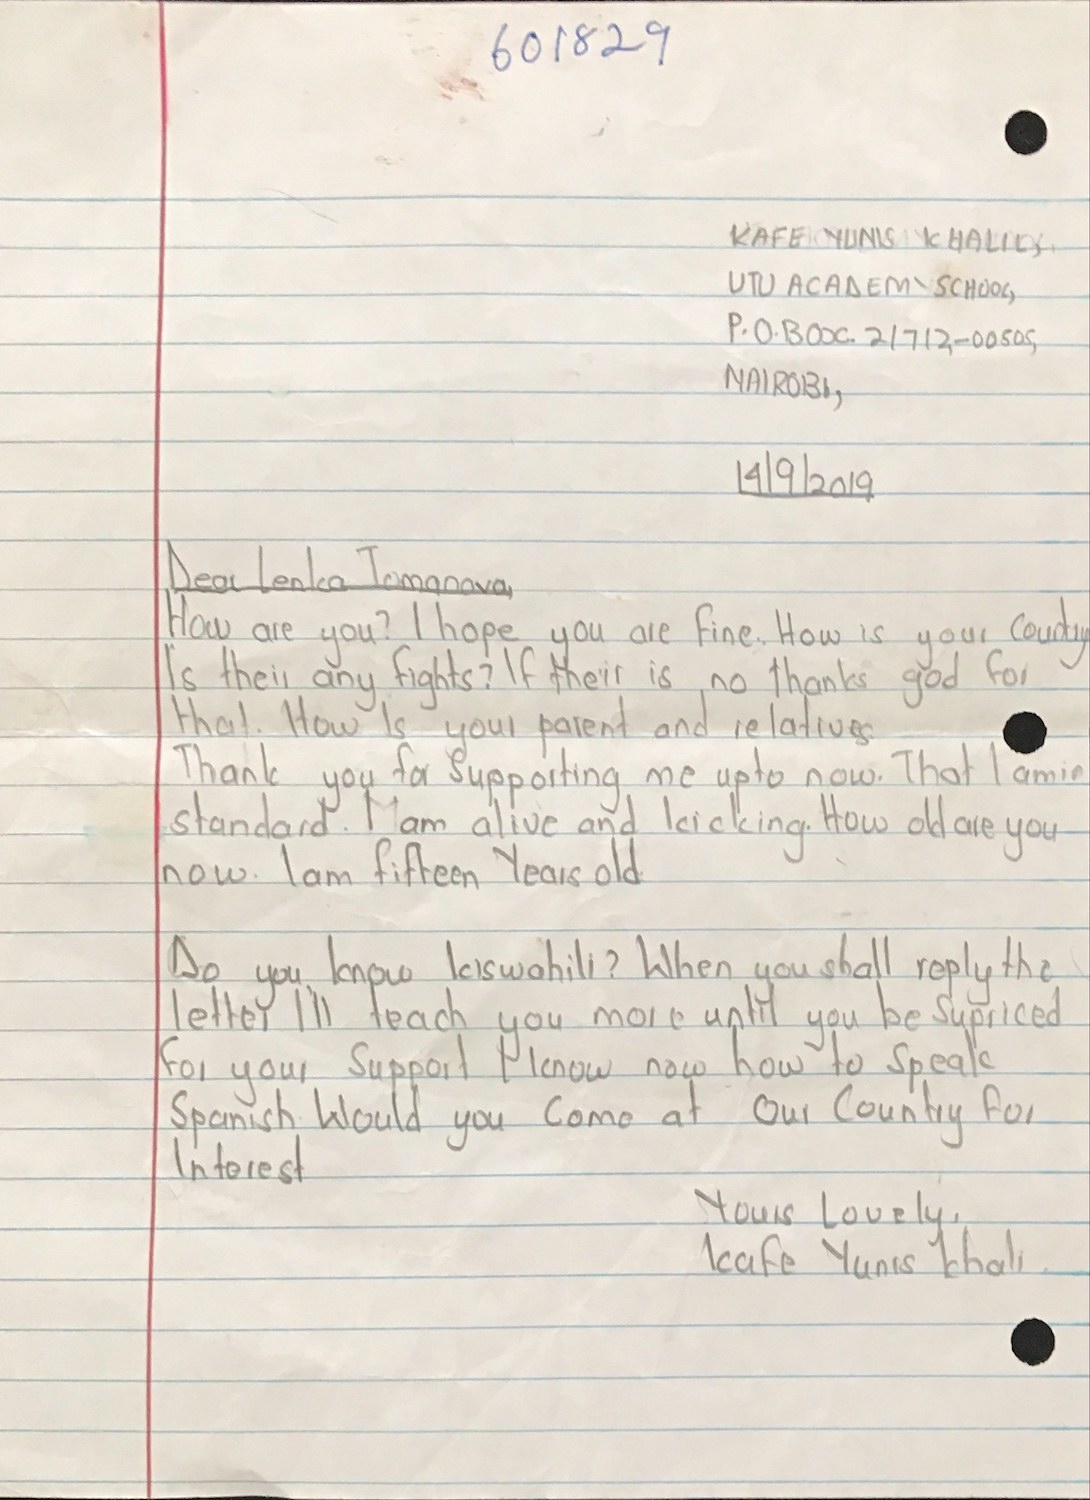 601829
KAFE YUNIS KHALIL,
UTU ACADEMY SCHOOL,
P.O.BOX. 21712-00505,
NAIROBI,
14/9/2019
Dear Lenka Tomanova,
How are you? I hope you are fine. How is your Country
Is their any fights? If their is no thanks god for
that. How Is your parent and relatives
Thank you for Supporting me upto now. That I am in
standard. I am alive and kicking. How old are you
now. I am fifteen Years old
Do you know kiswahili? When you shall reply the
letter I'll teach you more until you be Supriced
For your Support I know now how to Speak
Spanish. Would you Come at Our Country For
Interest
Yours Lovely,
Kafe Yunis Khali.